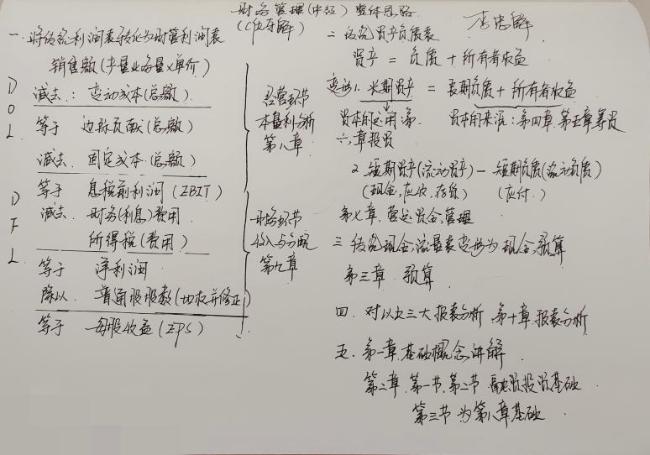 财务管理(中级)整体思路
一.将传统利润表转化为财管利润表
销售额(产量业务量×单价)
减去:变动成本(总额)
等于 边际贡献(总额)
减去.固定成本(总额)
等于 息税前利润(EBIT)
减去.财务(利息)费用
所得税(费用)
等于 净利润
除以.普通股股数(加权并修正)
等于 每股收益(EPS)
D
O
L
D
F
L
经营环节
本量利分析
第八章
财务环节
收入与分配
第九章
二.传统资产负债表
资产=负债+所有者权益
变形1.长期资产=长期负债+所有者权益
资本的运用:第六章投资
资本的来源:第四章.第五章筹资
2.短期资产(流动资产)-短期负债(流动负债)
(现金,应收,存货) (应付.)
第七章.营运资金管理
三.传统现金流量表变形为现金预算
第三章.预算
四.对以上三大报表分析.第十章.报表分析
五.第一章.基础概念讲解
第二章.第一节.第二节 融资投资基础
第三节为第八章基础.